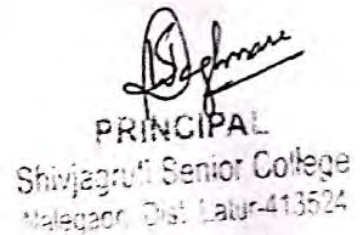 PRINCIPAL
Shivjagruti Senior College
Nalegaon Dist. Latur-413524